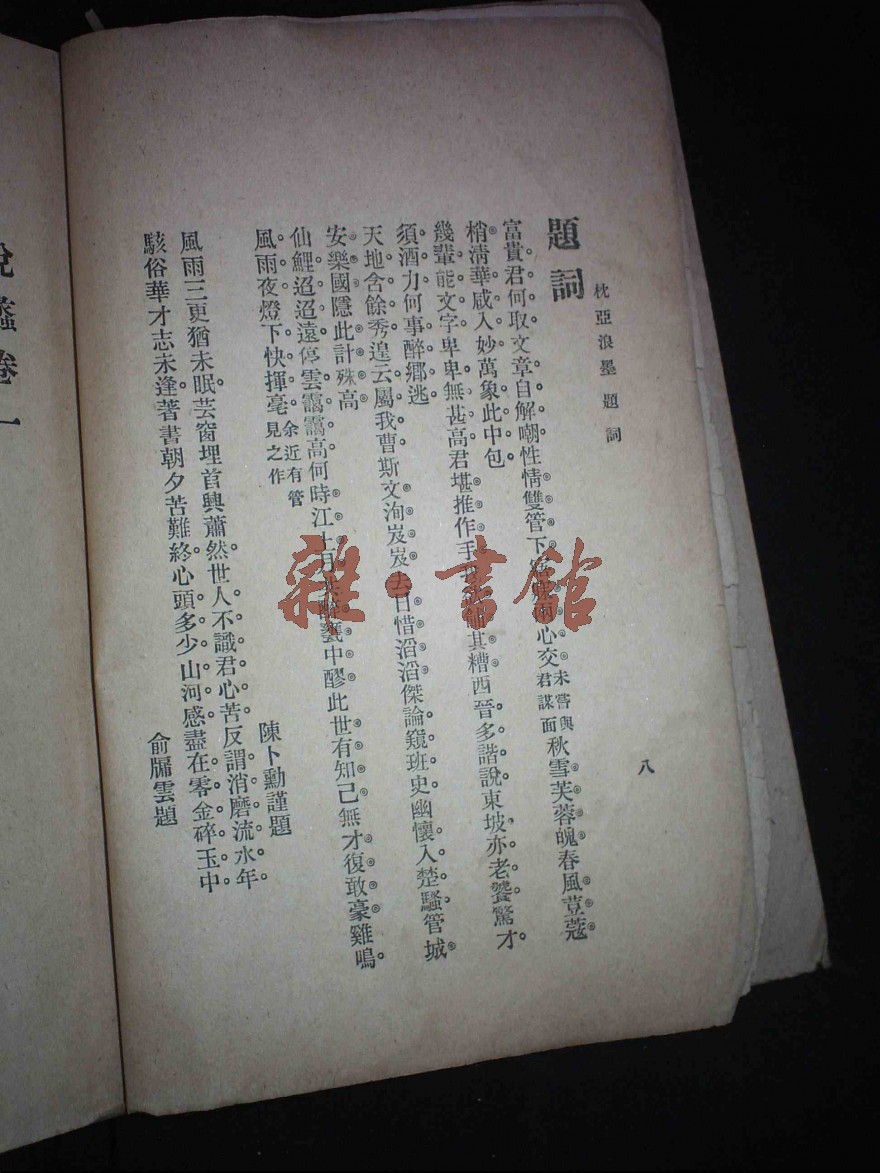 枕亞浪墨 題詞
八
題詞
富貴君何取。文章自解嘲。性情雙管下。心交。未嘗與君謀面秋雪芙蓉魄。春風荳蔻
梢。清華咸入妙。萬象此中包。
幾輩能文字。卑卑無甚高。君堪推作手。其糟。西晉多諧說。東坡亦老饕。驚才
須酒力。何事醉鄉逃。
天地含餘秀。遑云屬我曹。斯文洵岌岌。去日惜滔滔。傑論窺班史。幽懷入楚騷。管城
安樂國。隱此計殊高。
仙鯉迢迢遠。停雲靄靄高。何時江上月。共醉甕中醪。此世有知己。無才復敢豪。雞鳴
風雨夜。燈下快揮毫。余近有管見之作
陳卜勳謹題
風雨三更猶未眠。芸窗埋首興蕭然。世人不識君心苦。反謂消磨流水年。
駭俗華才志未逢。著書朝夕苦難終。心頭多少山河感。盡在零金碎玉中。
俞牖雲題
說蠡卷一
雜·書館